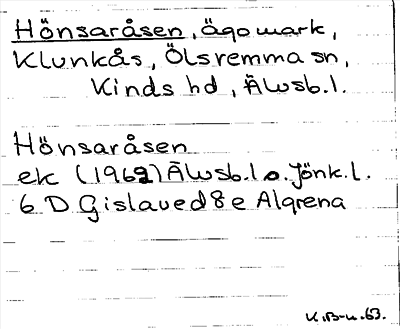 Hönsaråsen, ägomark,
Klunkås, Ölsremma sn,
Kinds hd, Älvsb.l.
Hönsaråsen
ek (1962) Älvsb.l o. Jönk.l.
6 D Gislaved 8 e Alqrena
K.B-n.63.